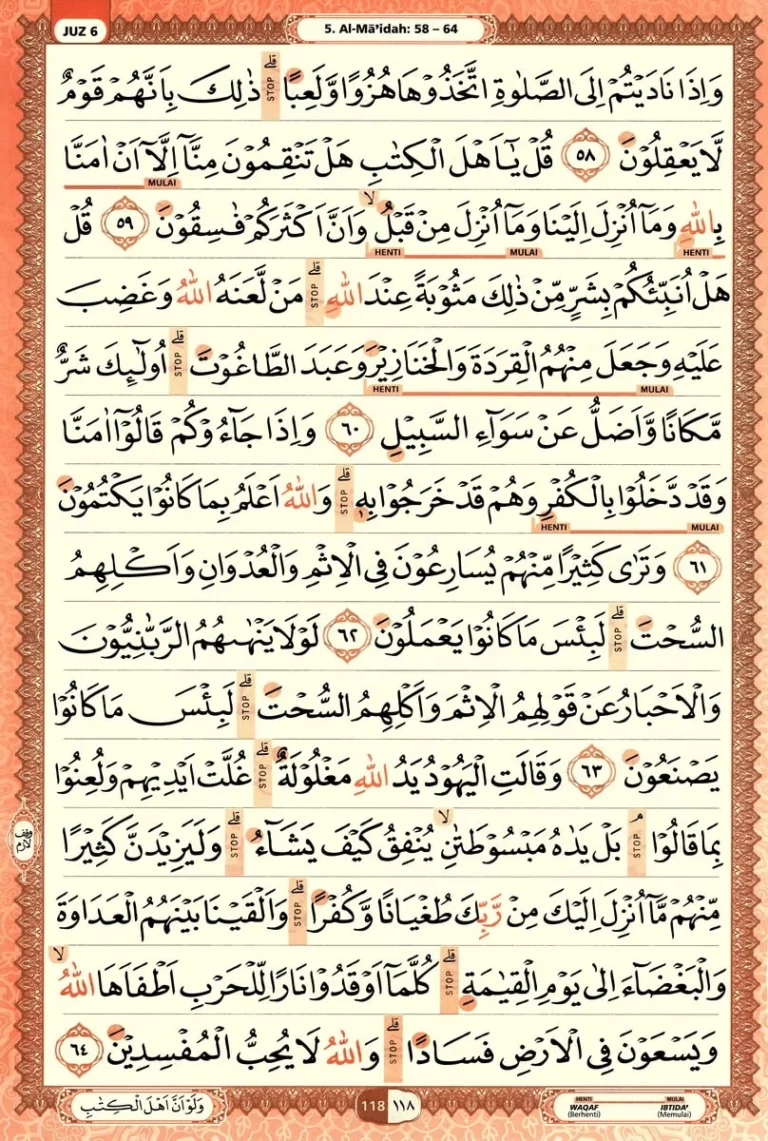 JUZ 6
5. Al-Mā'idah: 58 – 64
وَاِذَا نَادَيْتُمْ اِلَى الصَّلٰوةِ اتَّخَذُوْهَا هُزُوًا وَّلَعِبًا ۗ STOP ذٰلِكَ بِاَنَّهُمْ قَوْمٌ
لَّا يَعْقِلُوْنَ ٥٨ قُلْ يٰٓاَهْلَ الْكِتٰبِ هَلْ تَنْقِمُوْنَ مِنَّآ اِلَّآ اَنْ اٰمَنَّا
MULAI
بِاللّٰهِ وَمَآ اُنْزِلَ اِلَيْنَا وَمَآ اُنْزِلَ مِنْ قَبْلُ ۙ وَاَنَّ اَكْثَرَكُمْ فٰسِقُوْنَ ٥٩ قُلْ
HENTI MULAI HENTI
هَلْ اُنَبِّئُكُمْ بِشَرٍّ مِّنْ ذٰلِكَ مَثُوْبَةً عِنْدَ اللّٰهِ ۗ STOP مَنْ لَّعَنَهُ اللّٰهُ وَغَضِبَ
عَلَيْهِ وَجَعَلَ مِنْهُمُ الْقِرَدَةَ وَالْخَنَازِيْرَ وَعَبَدَ الطَّاغُوْتَ ۗ STOP اُولٰۤىِٕكَ شَرٌّ
HENTI MULAI
مَّكَانًا وَّاَضَلُّ عَنْ سَوَاۤءِ السَّبِيْلِ ٦٠ وَاِذَا جَاۤءُوْكُمْ قَالُوْٓا اٰمَنَّا
وَقَدْ دَّخَلُوْا بِالْكُفْرِ وَهُمْ قَدْ خَرَجُوْا بِهٖ ۗ STOP وَاللّٰهُ اَعْلَمُ بِمَا كَانُوْا يَكْتُمُوْنَ
HENTI MULAI
٦١ وَتَرٰى كَثِيْرًا مِّنْهُمْ يُسَارِعُوْنَ فِى الْاِثْمِ وَالْعُدْوَانِ وَاَكْلِهِمُ
السُّحْتَ ۗ STOP لَبِئْسَ مَا كَانُوْا يَعْمَلُوْنَ ٦٢ لَوْلَا يَنْهٰىهُمُ الرَّبّٰنِيُّوْنَ
وَالْاَحْبَارُ عَنْ قَوْلِهِمُ الْاِثْمَ وَاَكْلِهِمُ السُّحْتَ ۗ STOP لَبِئْسَ مَا كَانُوْا
يَصْنَعُوْنَ ٦٣ وَقَالَتِ الْيَهُوْدُ يَدُ اللّٰهِ مَغْلُوْلَةٌ ۗ STOP غُلَّتْ اَيْدِيْهِمْ وَلُعِنُوْا
وقف لازم
بِمَا قَالُوْا ۘ STOP بَلْ يَدٰهُ مَبْسُوْطَتٰنِ ۙ يُنْفِقُ كَيْفَ يَشَاۤءُ ۗ STOP وَلَيَزِيْدَنَّ كَثِيْرًا
مِّنْهُمْ مَّآ اُنْزِلَ اِلَيْكَ مِنْ رَّبِّكَ طُغْيَانًا وَّكُفْرًا ۗ STOP وَاَلْقَيْنَا بَيْنَهُمُ الْعَدَاوَةَ
وَالْبَغْضَاۤءَ اِلٰى يَوْمِ الْقِيٰمَةِ ۗ STOP كُلَّمَآ اَوْقَدُوْا نَارًا لِّلْحَرْبِ اَطْفَاَهَا اللّٰهُ ۙ
وَيَسْعَوْنَ فِى الْاَرْضِ فَسَادًا ۗ STOP وَاللّٰهُ لَا يُحِبُّ الْمُفْسِدِيْنَ ٦٤
وَلَوْ اَنَّ اَهْلَ الْكِتٰبِ
118 ١١٨
HENTI MULAI
WAQAF IBTIDA'
(Berhenti) (Memulai)